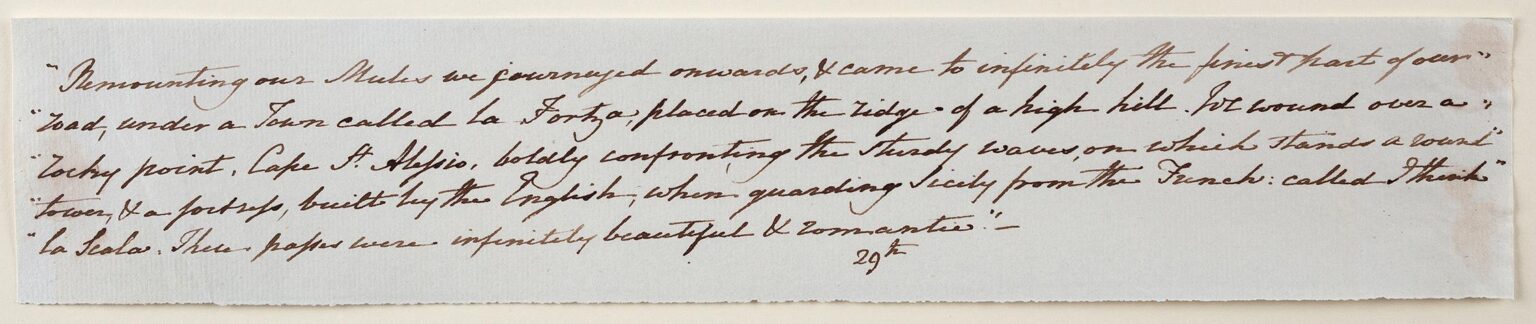 "Remounting our Mules we journeyed onwards, & came to infinitely the finest part of our"
"road, under a Town called la Fortza, placed on the ridge - of a high hill. We wound over a "
"rocky point, Cape St. Alessio, boldly confronting the sturdy waves, on which stands a round"
"tower, & a fortress, built by the English, when guarding Sicily from the French: called I think"
"la Scala. These passes were infinitely beautiful & romantic."—
29th